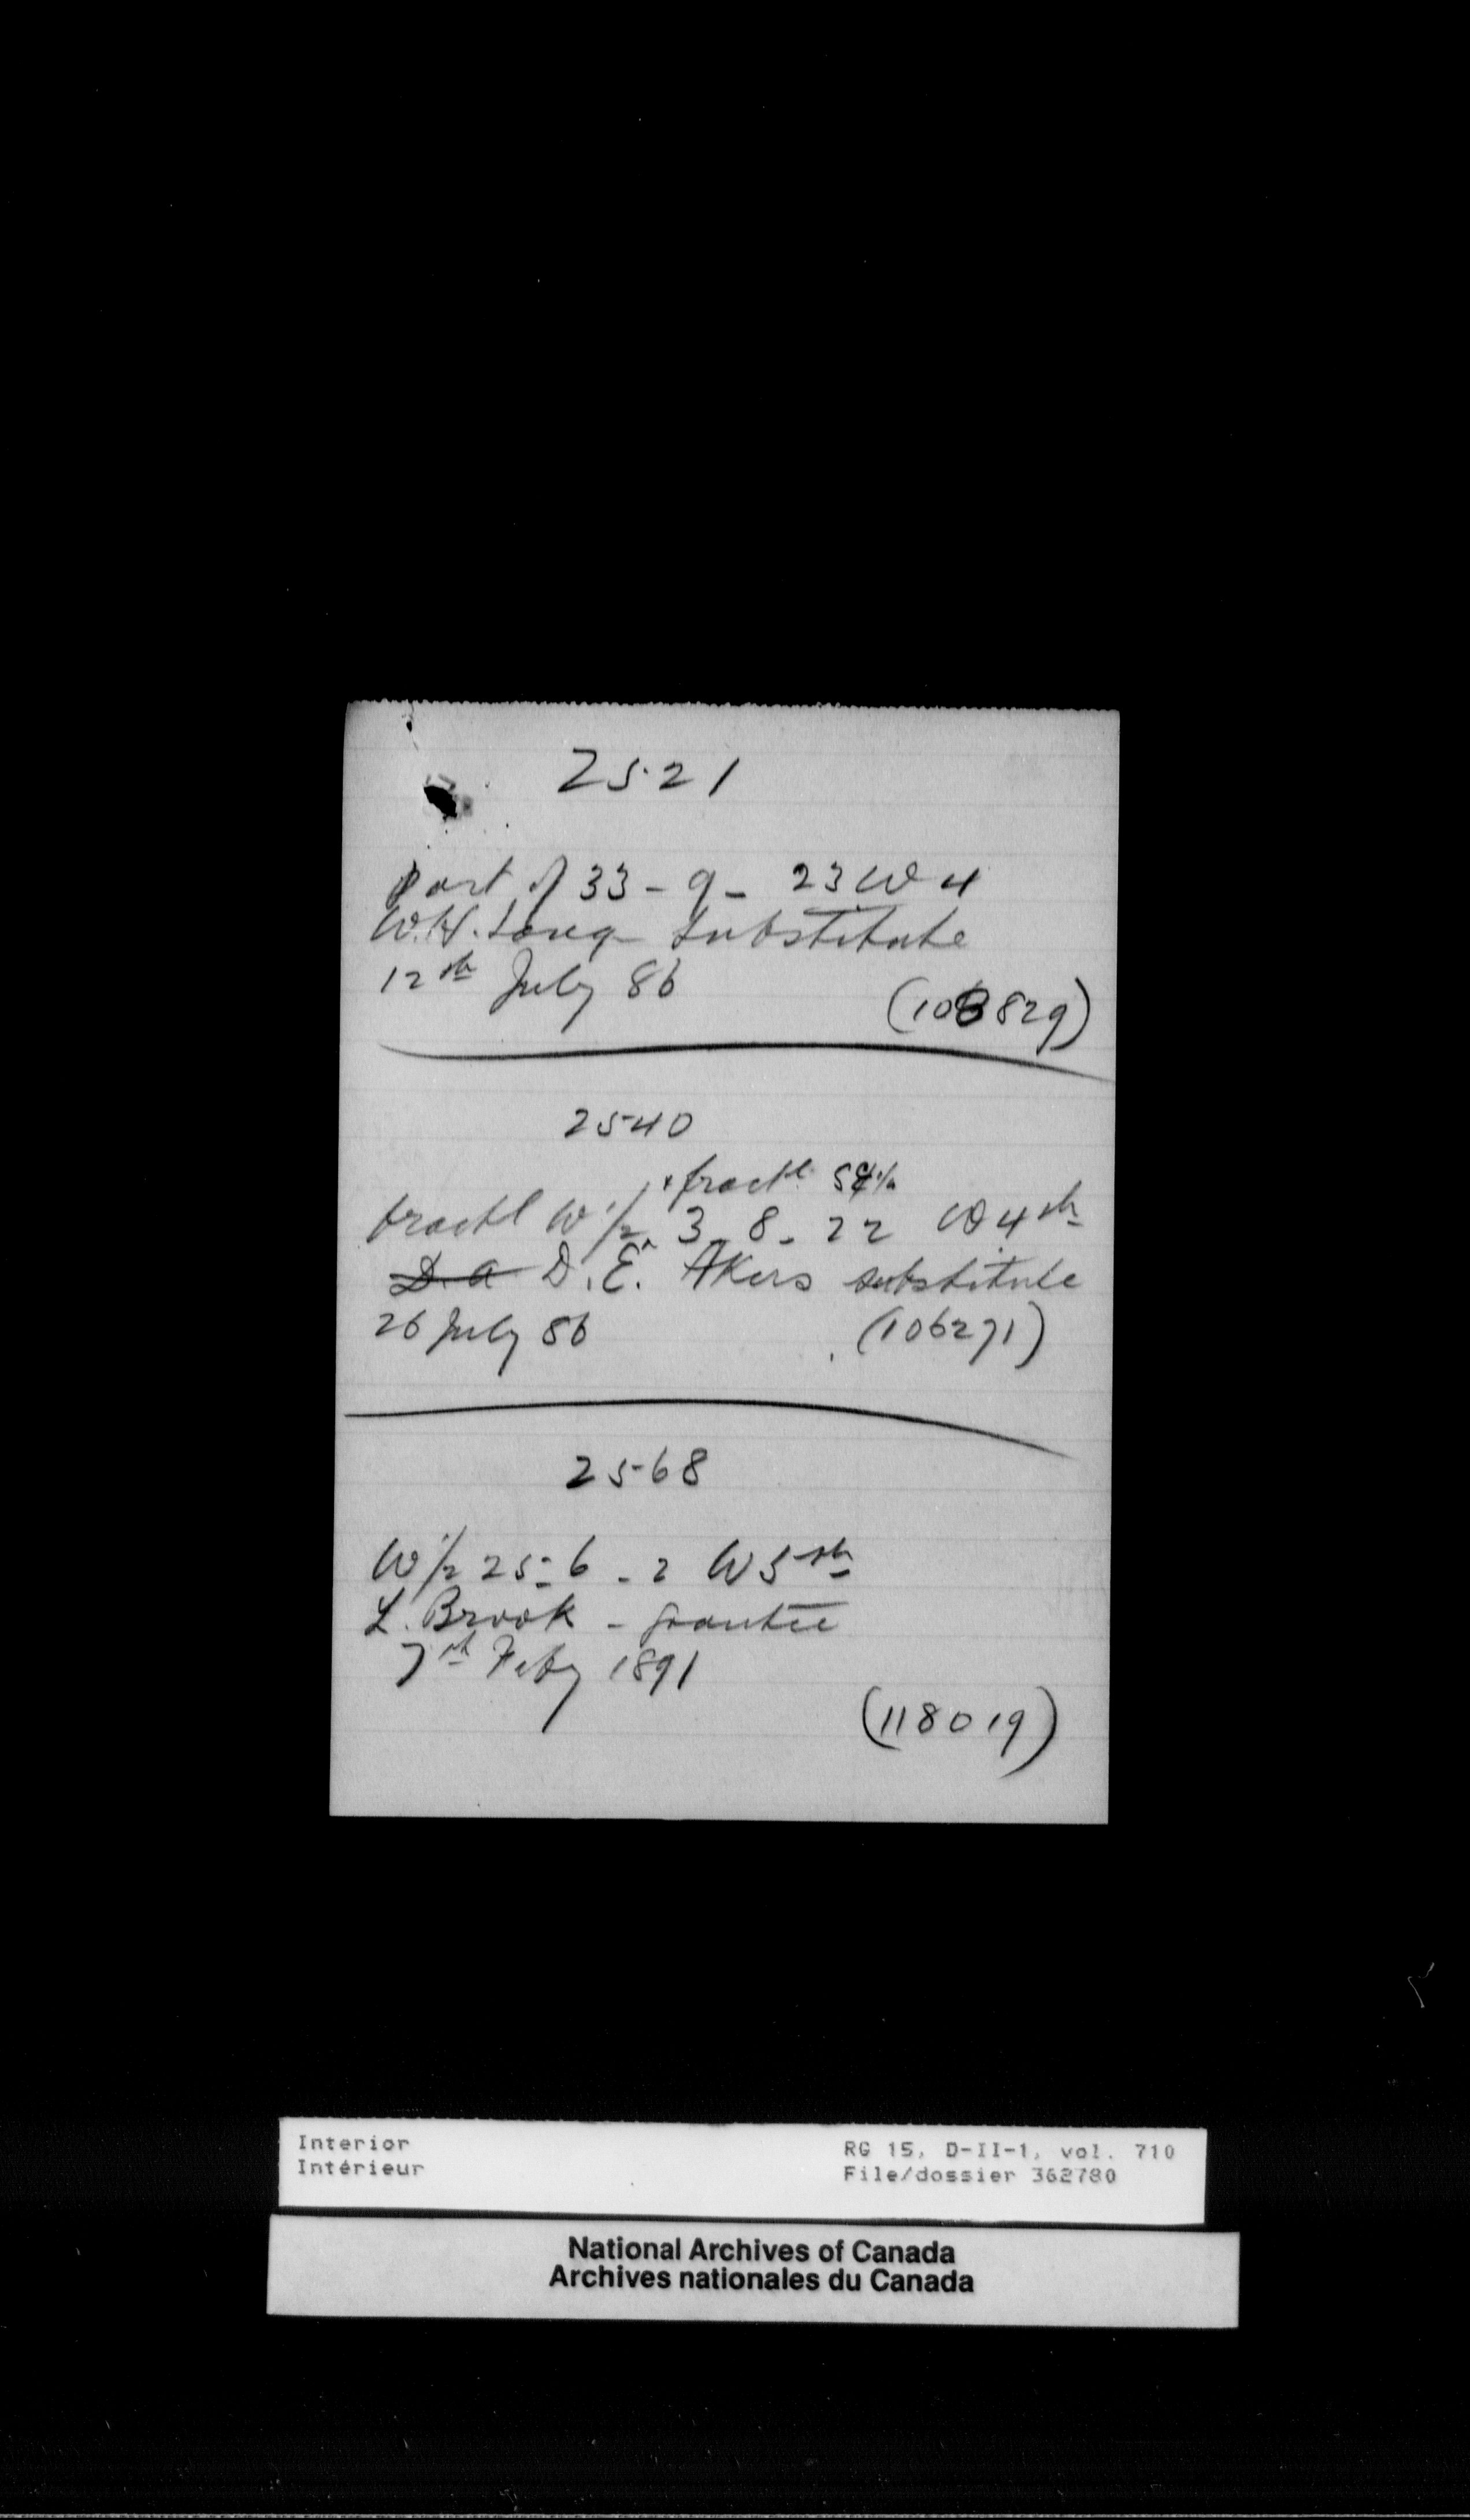 2521
Part of 33 - 9 - 23 W 4
W.H. Long - Substitute
12th July 86
(106829)
2540
& fractl SE¼
fractl W½ 3 - 8 - 22 W 4th
D. A D. E. Akers substitute
26 July 86 (106271)
2568
W½ 25 - 6 - 2 W 5th
L. Brook - grantee
7th Feby 1891
(118019)
Interior RG 15, D-II-1, vol. 710
Intérieur File/dossier 362780
National Archives of Canada
Archives nationales du Canada